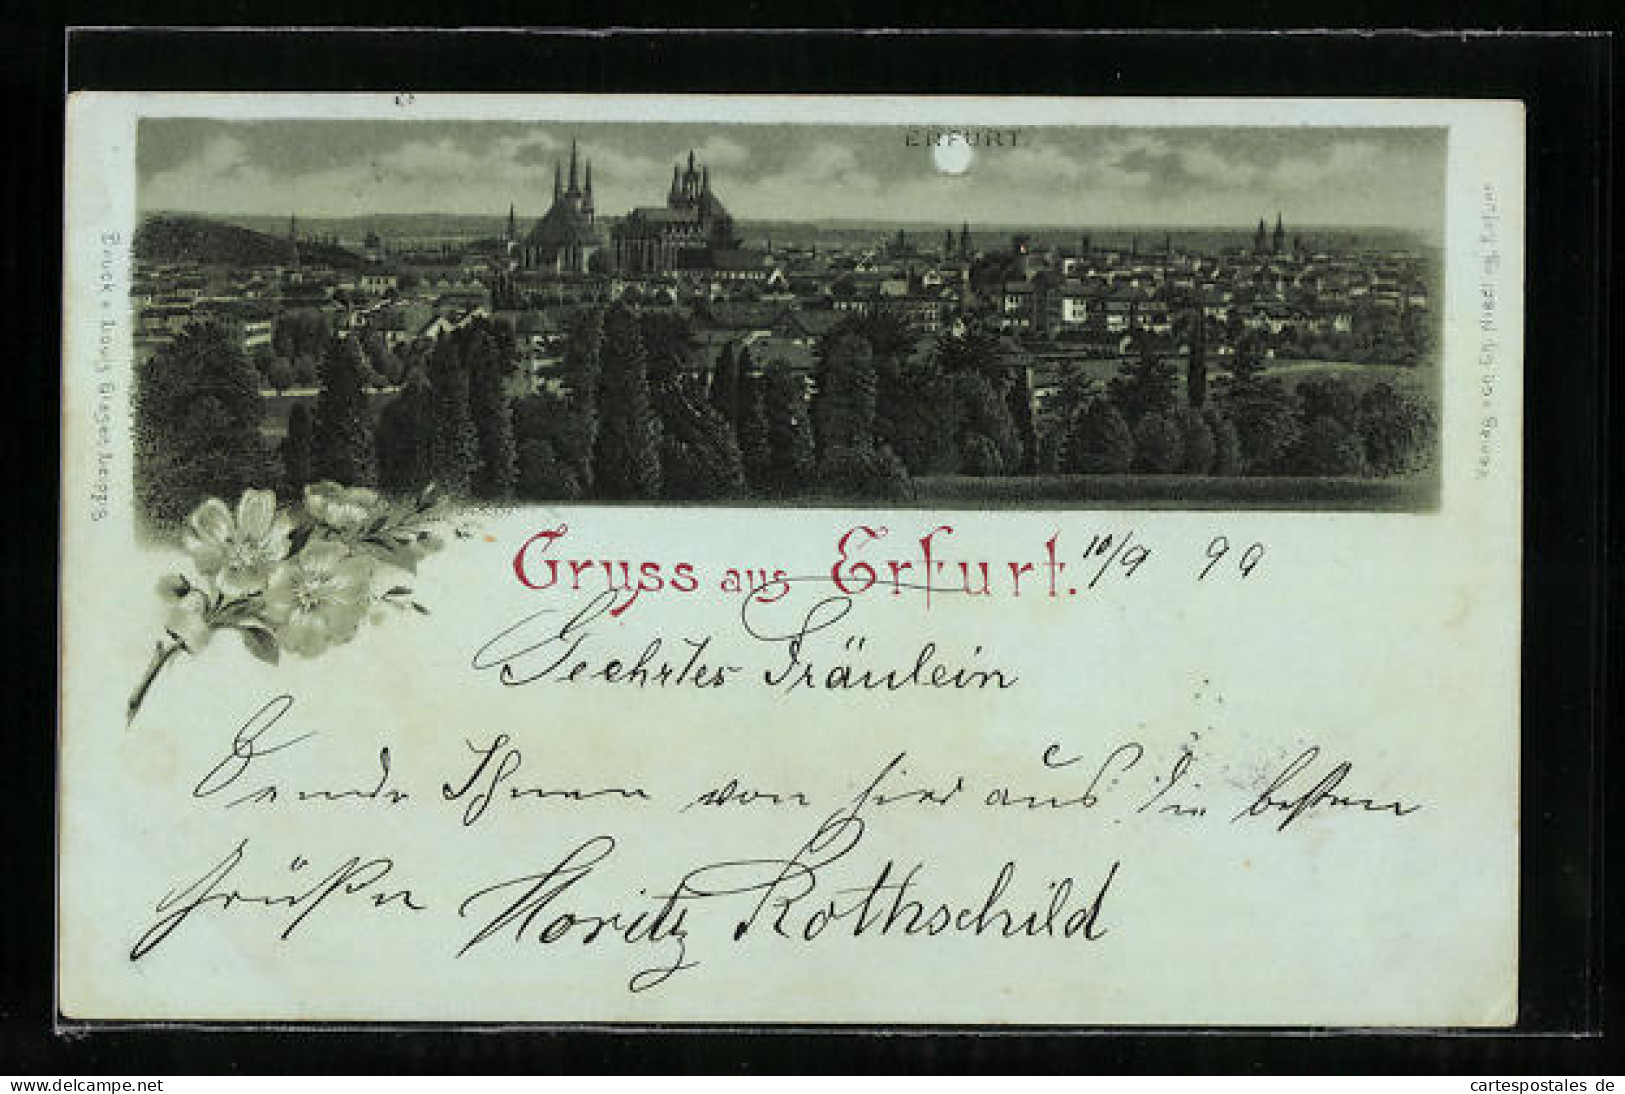 ERFURT.
Druck v. Louis Glaser, Leipzig
Verlag von
Gruss aus Erfurt.
10/9 99
Geehrtes Fräulein
Sende Ihnen von hier aus die besten
Grüße Moritz Rothschild
delcampe.net
cartespostales de